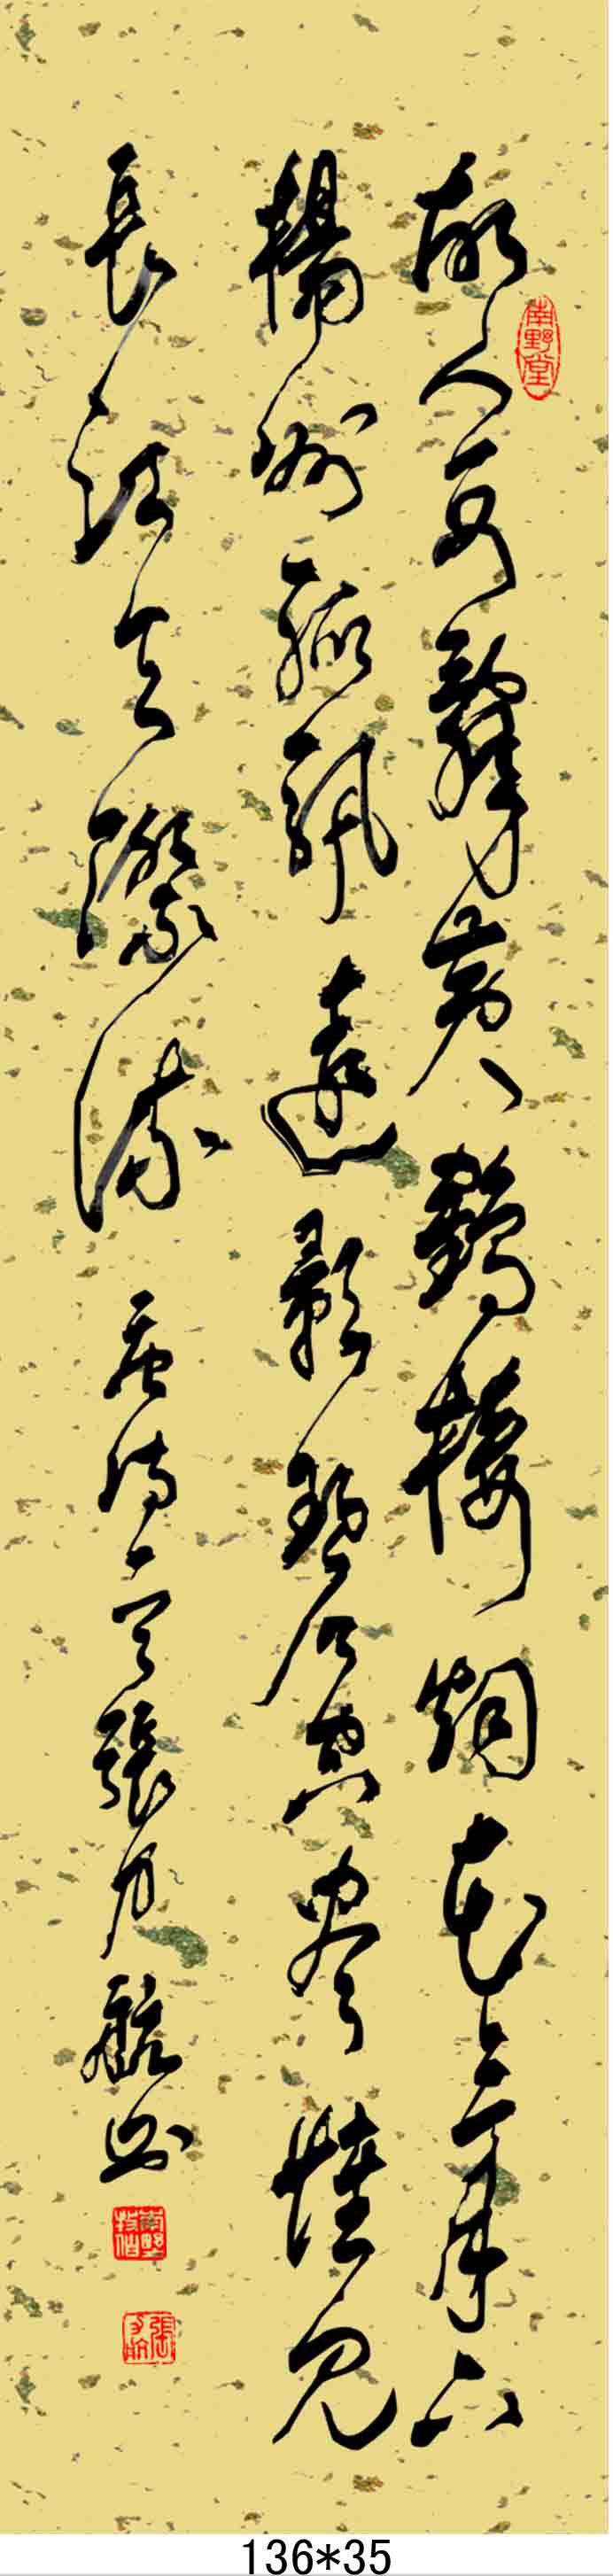 故人西辭黃鶴樓烟花三月下
揚州孤帆遠影碧空盡惟見
長江天際流 張力航書
南野堂
136*35